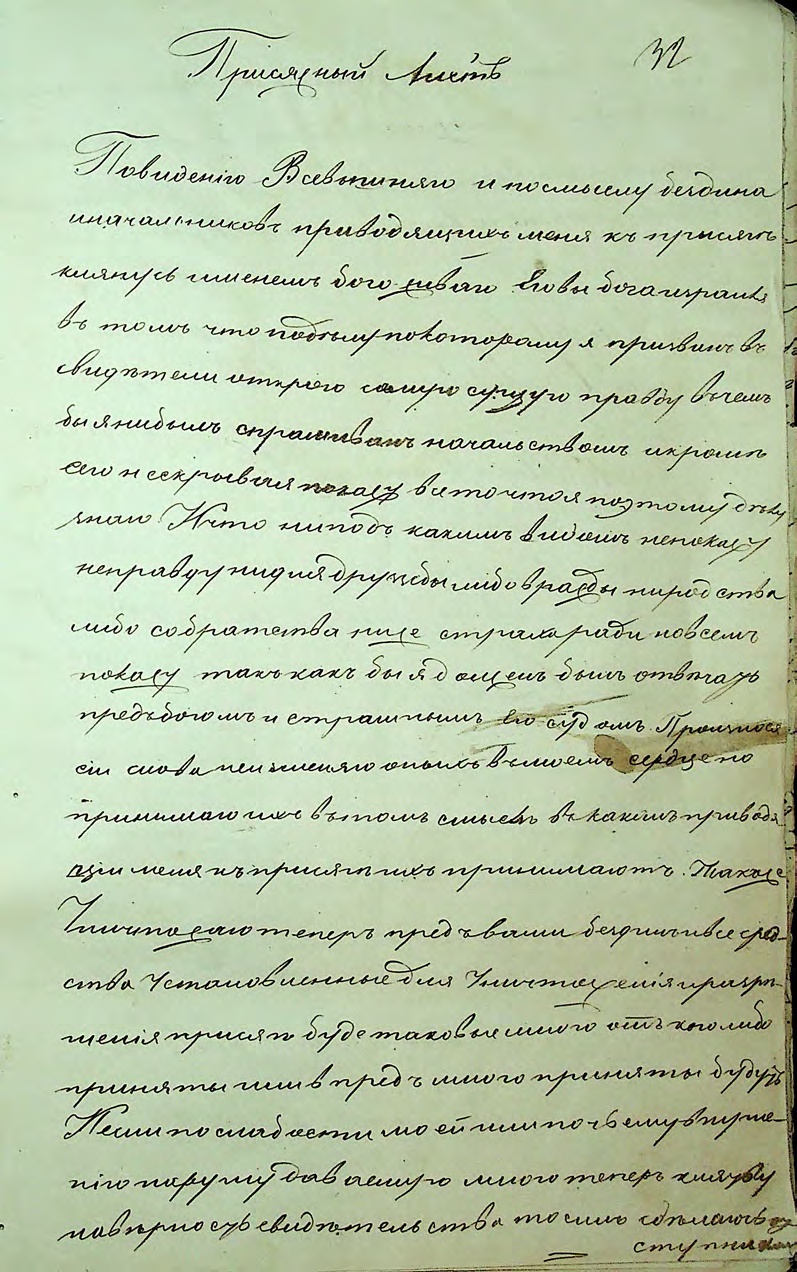 Присяжный Листъ
32
Повидению Всевышняго и посмыслу бездина
иначальниковъ приводящихъ меня къ присягѣ
клянусь именемъ бога живаго Еговы бога израиля
въ томъ что подѣлу покоторому я призванъ въ
свидѣтели открою самую сущую правду вчемъ
бы я нибылъ спрашиванъ начальствомъ икромѣ
сего нескрывая покажу все то что я поэтому дѣлу
знаю Ичто ниподъ какимъ видомъ непокажу
неправду нидля дружбы либо вражды ниродства
либо собратства ниже страхаради новсемъ
покажу такъ какъ бы я долженъ былъ отвѣчать
предъ богомъ и страшнымъ Его судомъ. Произнося
сіи слова неизменяю оныхъ въ моемъ сердце но
принимаю ихъ втомъ смыслѣ въ какимъ приводя
щіи меня къ присягѣ ихъ принимаютъ. Также
Уничтожаю теперь предъ вами бездинъ и все сред-
ства установленные для уничтоженія и разрѣ-
шенія присяги буде таковые мною отъ кого либо
приняты или впредъ мною приняты будутъ
Неили по слабости моей или почьему внуше-
нію нарушу даваемую мною теперь клятву
навѣрность свидѣтельства то симъ сделаюсь
ступникомъ